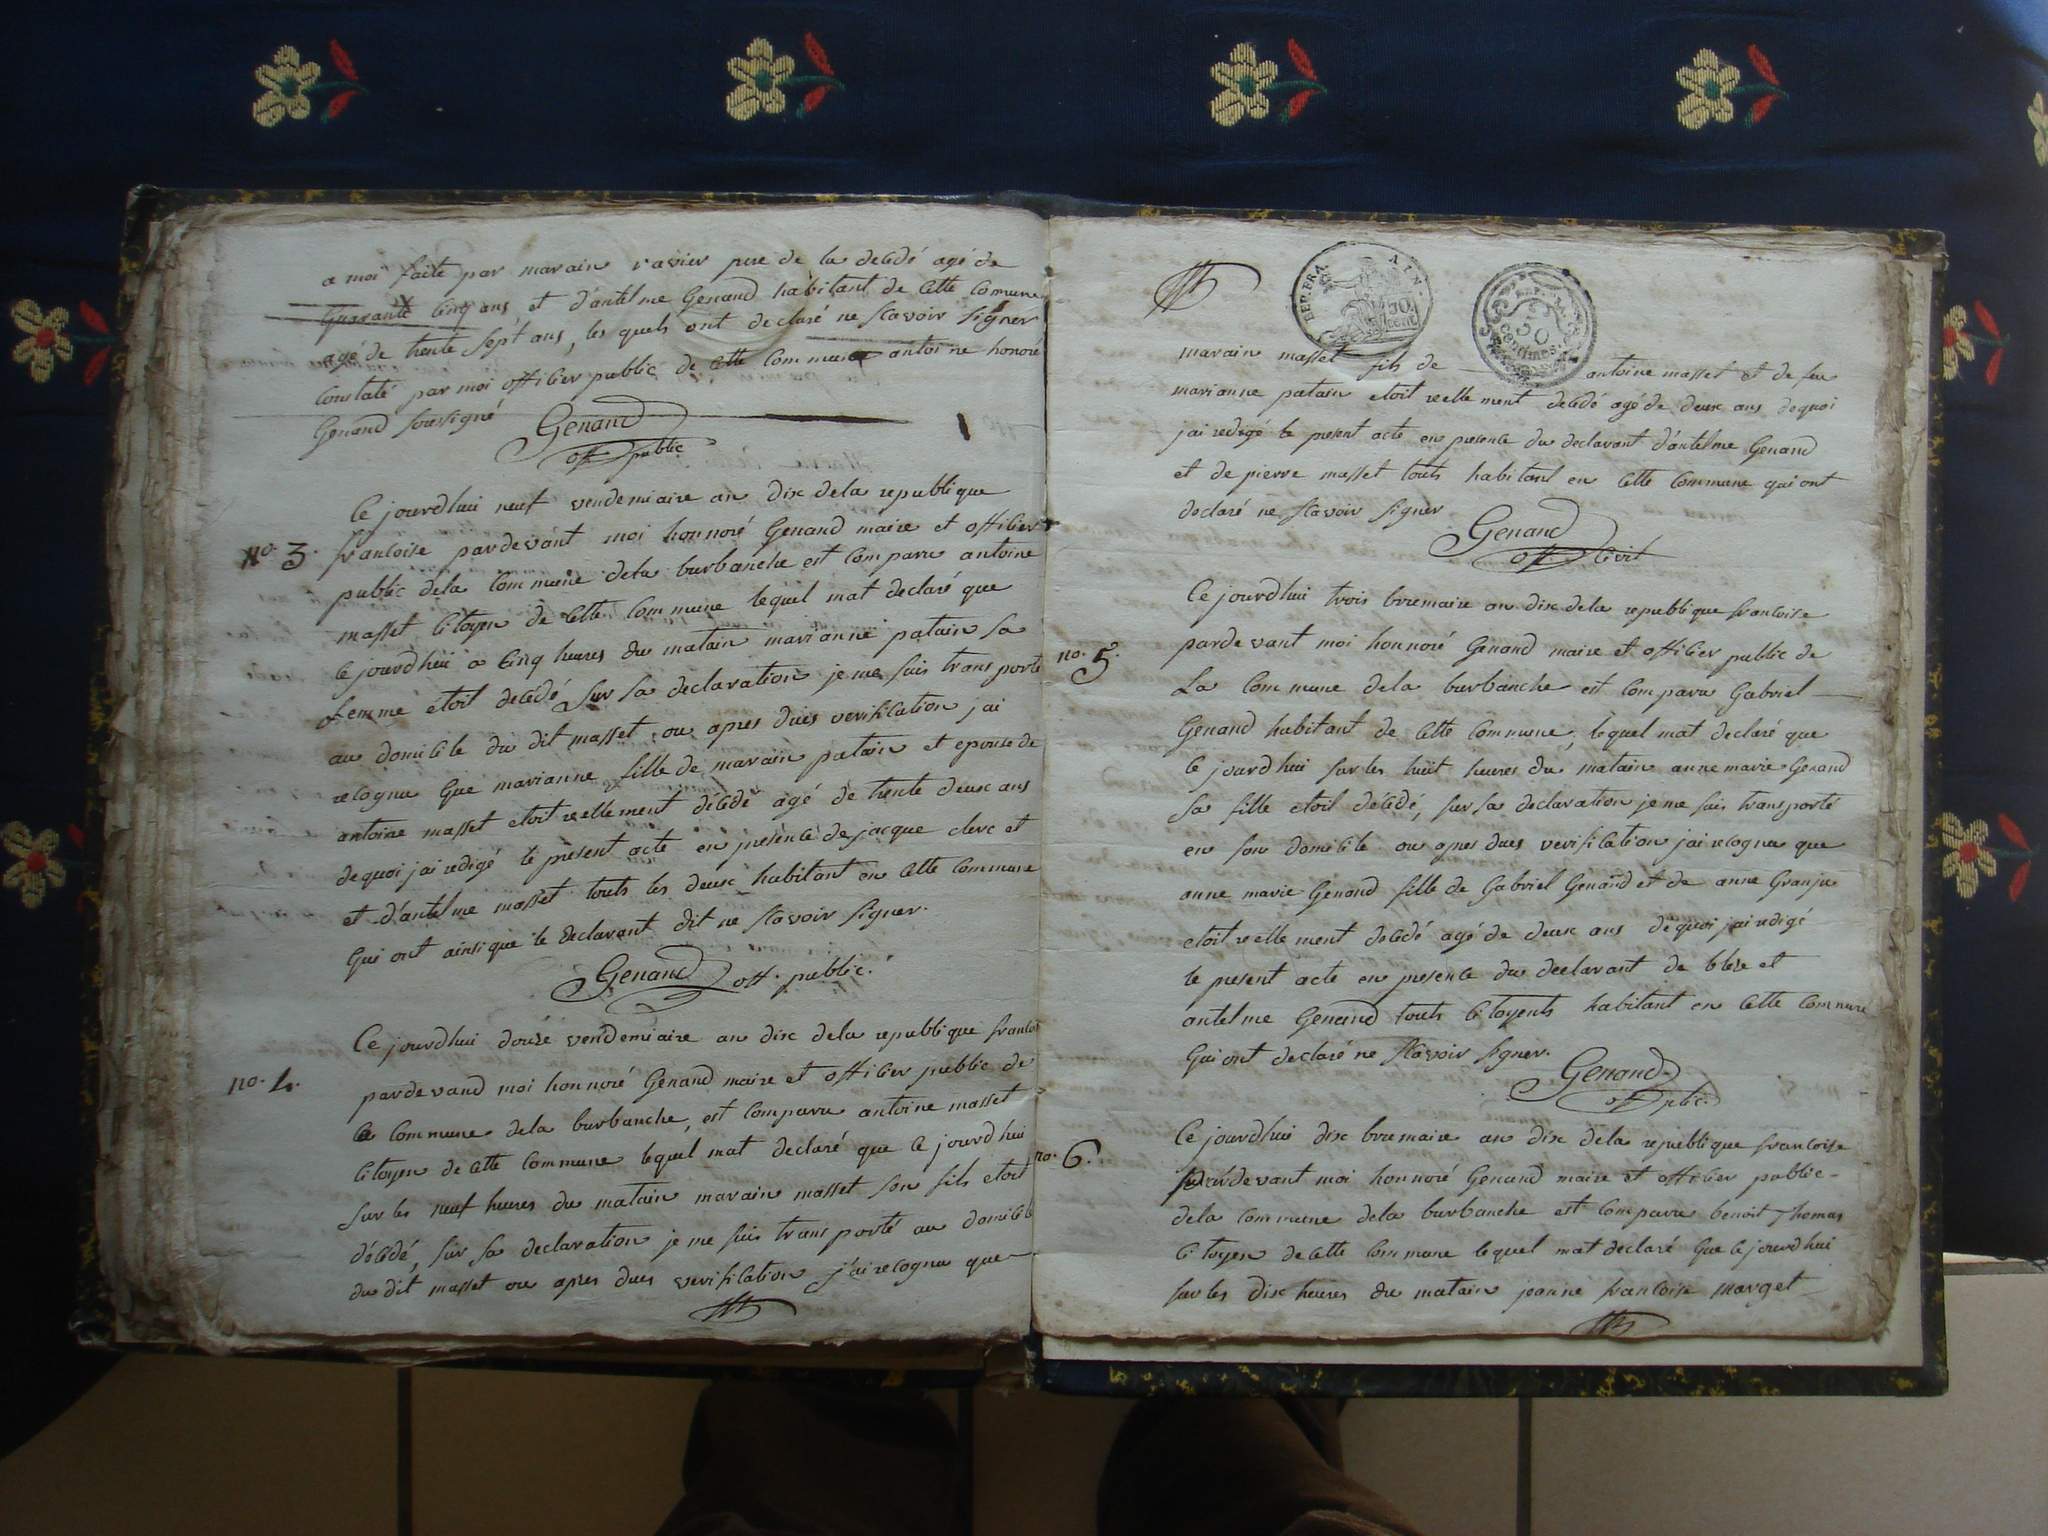 a moi faite par marain ravier pere de la decédé agé de
Quarante cinq ans, et d'antelme Genand habitant de cette comune
agé de trente sept ans, les quels ont declaré ne scavoir signer
constaté par moi officier public de cette commune antoine honoré
Genand soussigné
Genand
off public
no. 3.
Ce jourdhui neuf vendemiaire an dix dela republique
francoise pardevant moi honnoré Genand maire et officier
public dela commune dela burbanche est comparu antoine
masset citoyen de cette commune lequel mat declaré que
cejourdhui a cinq heures du matain marianne patain sa
femme étoit decédé sur sa declaration je me suis transporté
au domicile du dit masset ou apres dues verification jai
recognu que marianne fille de marain patain et epouse de
antoine masset etoit reellement décédé agé de trente deux ans
dequoi jai redigé le present acte en présence de jacque clerc et
et d'antelme masset touts les deux habitant en cette commune
qui ont ainsi que le declarant dit ne scavoir signer.
Genand off. public.
no. 4.
Ce jourdhui douze vendemiaire an dix dela republique franco
pardevand moi honnoré Genand maire et officier public de
la commune dela burbanche, est comparu antoine masset
citoyen de cette commune lequel mat declaré que ce jourdhui
sur les neuf heures du matain marain masset son fils etoit
décédé, sur sa declaration je me suis transporté au domicile
du dit masset ou apres dues verification j'ai recognu que
DEP. DE L'AIN.
50 cent
50
centimes.
marain masset fils de antoine masset et de feu
marianne patain etoit reellement decédé agé de deux ans dequoi
jai redigé le present acte en presence du declarant d'antelme Genand
et de pierre masset touts habitant en cette commune qui ont
declaré ne scavoir signer
Genand
off Civil
no. 5.
Ce jourdhui trois bremaire an dix dela republique francoise
pardevant moi honnoré Genand maire et officier public de
La commune dela burbanche est comparu Gabriel
Genand habitant de cette commune, lequel mat declaré que
ce jourdhui sur les huit heures du matain anne marie Genand
sa fille etoit decédé, sur sa declaration je me suis transporté
en son domicile ou apres dues verification jai recognu que
anne marie Genand fille de Gabriel Genand et de anne Granju
etoit reellement decédé agé de deux ans dequoi jai redigé
le present acte en presence du declarant de et
antelme Genand touts citoyents habitant en cette commune
Qui ont declaré ne scavoir signer.
Genand
off plic.
no. 6.
Ce jourdhui dix bremaire an dix dela republique francoise
pardevant moi honnoré Genand maire et officier public
dela commune dela burbanche est comparu benoit Thomas
citoyen de cette commune lequel mat declaré que ce jourdhui
sur les dix heures du matain jeanne francoise marget